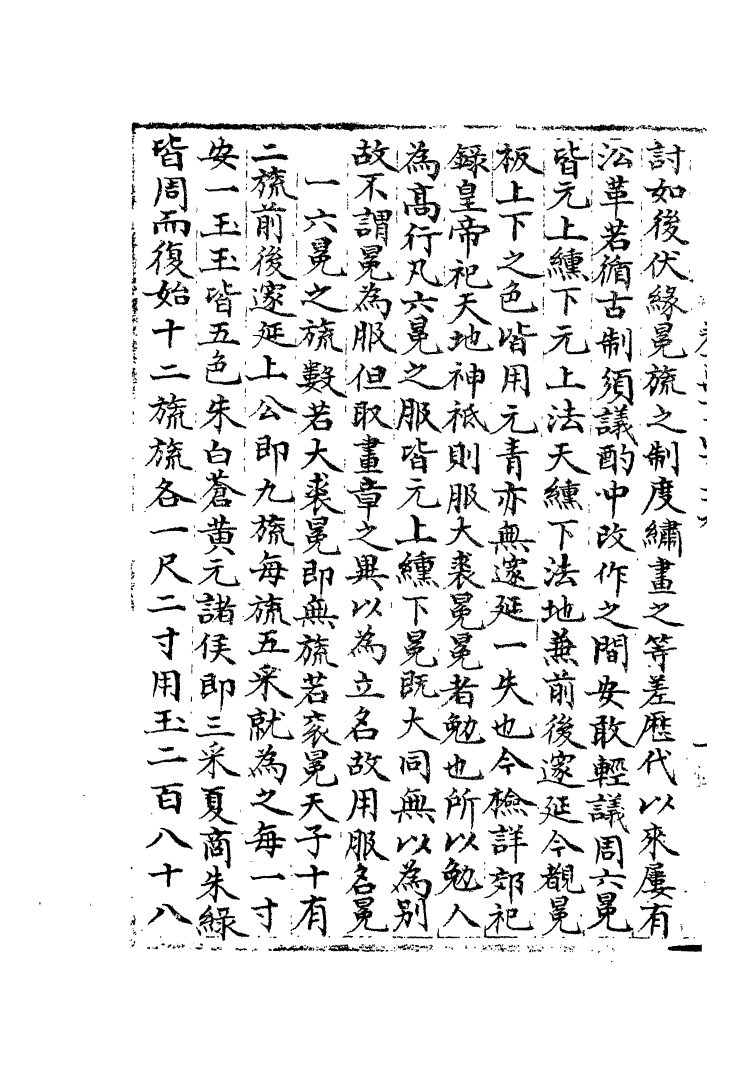 討如後伏緣冕旒之制度繡畫之等差歷代以來屢有
沿革若循古制須議酌中改作之間安敢輕議周六冕
皆元上纁下元上法天纁下法地兼前後邃延今覩冕
板上下之色皆用元青亦無邃延一失也今檢詳郊祀
錄皇帝祀天地神祗則服大裘冕冕者勉也所以勉人
為高行凡六冕之服皆元上纁下冕旣大同無以為别
故不謂冕為服但取畫章之異以為立名故用服名冕
一六冕之旒數若大裘冕即無旒若衮冕天子十有
二旒前後邃延上公即九旒每旒五采就為之每一寸
安一玉玉皆五色朱白蒼黄元諸侯即三采夏商朱綠
皆周而復始十二旒旒各一尺二寸用玉二百八十八